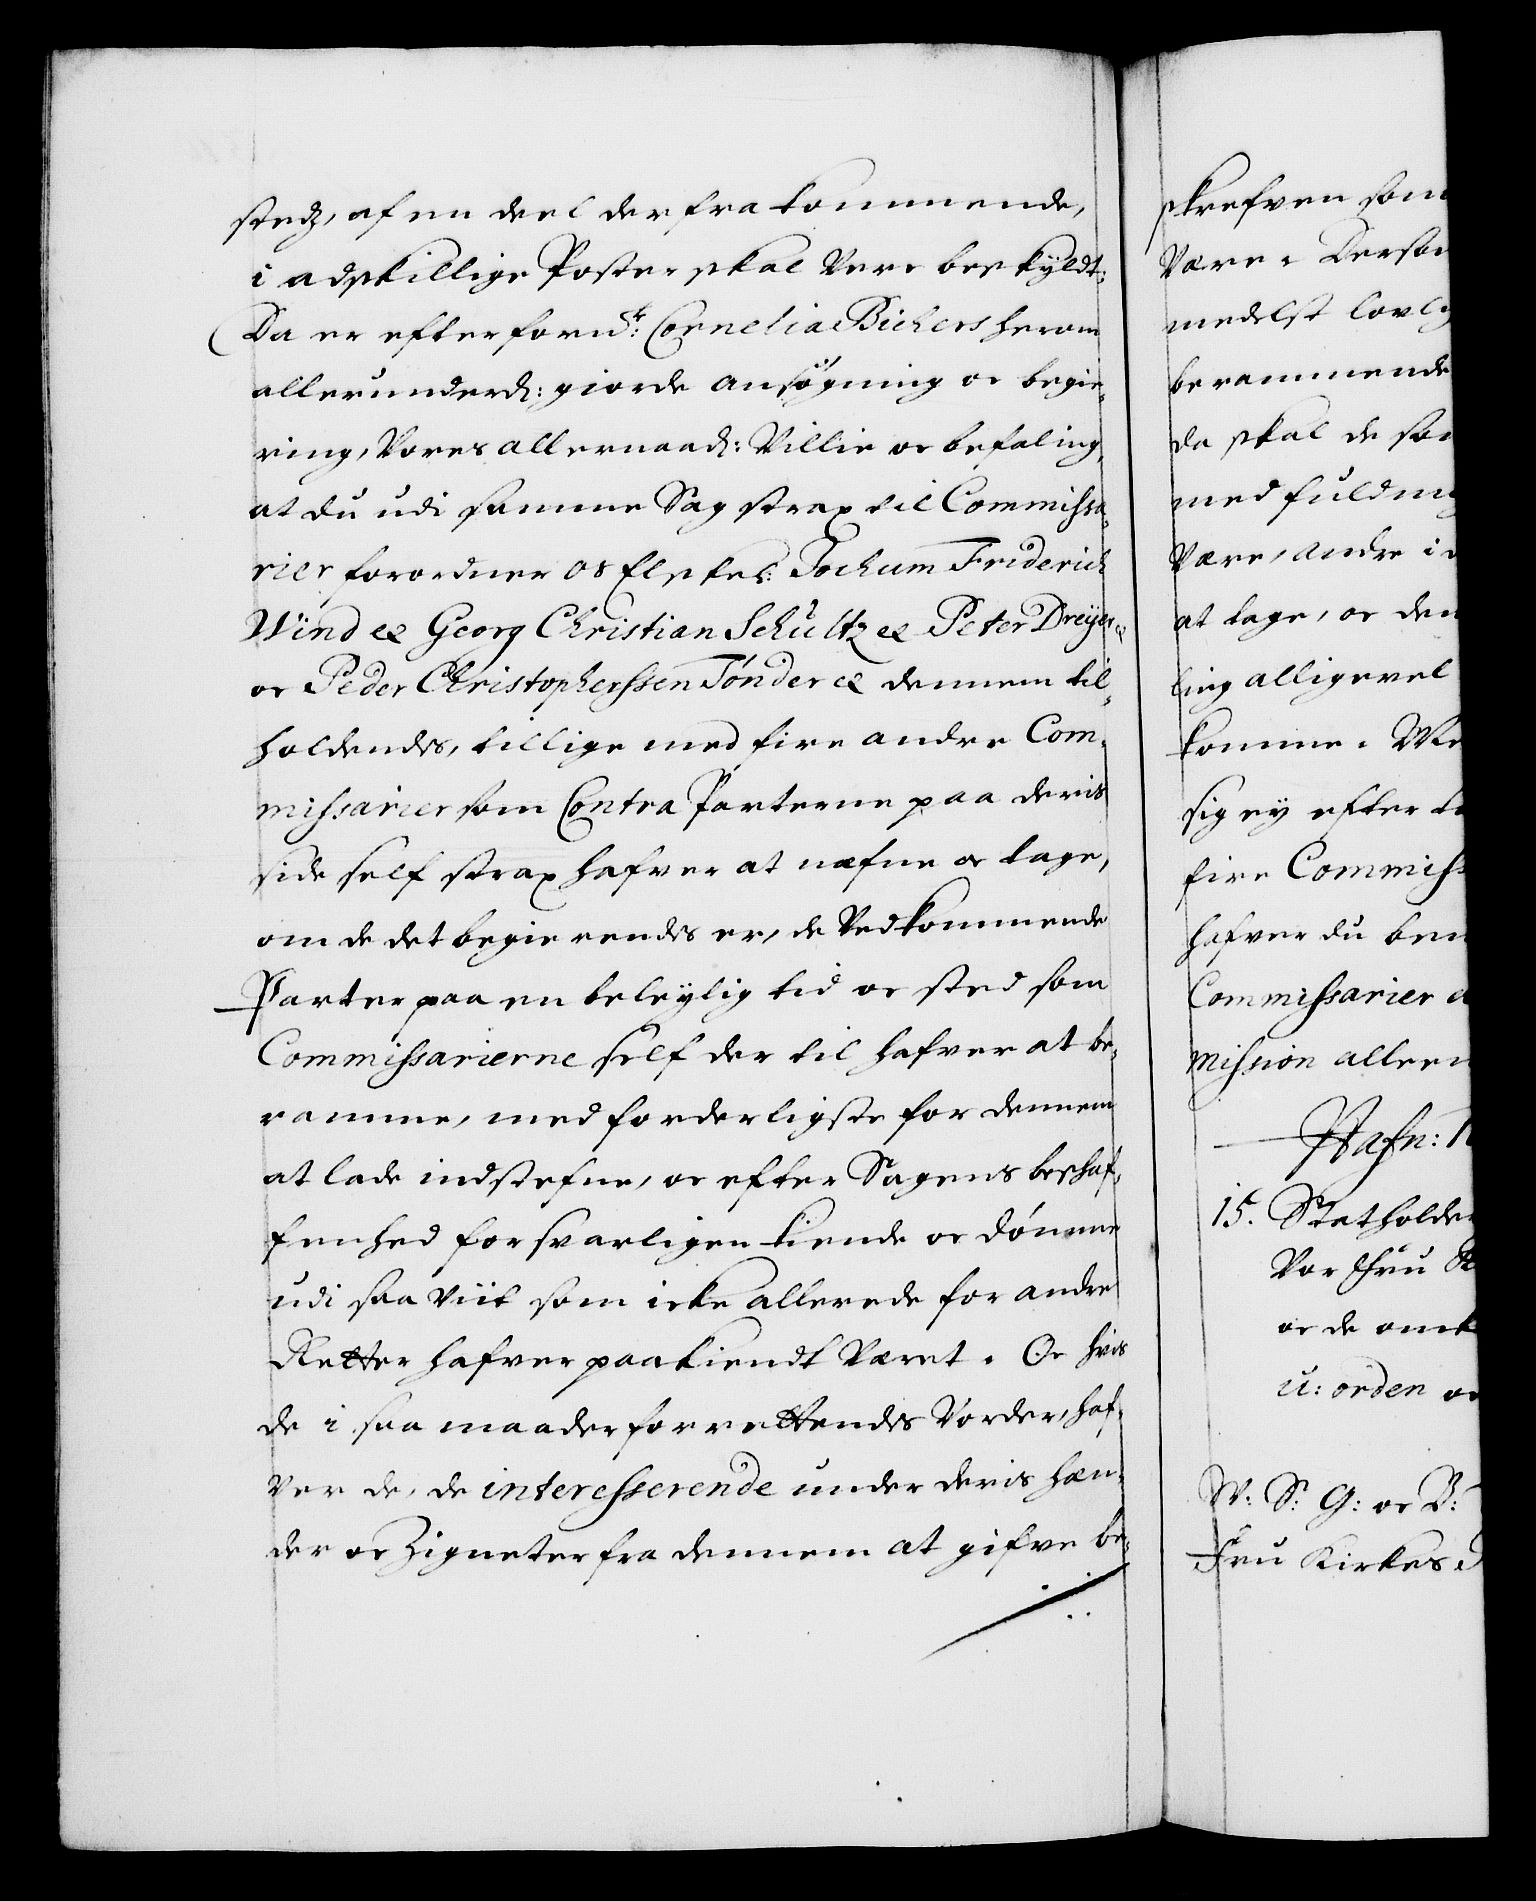 stedz, af en deel der fra kommende,
i adskillige Poster skal Vere beskyldt;
Da er efter fornte: Cornelia Bichers herom
allerunderd: giorde ansøgning oc begie-
ring, Vores allernaad: Villie oc befaling,
at du udi samme Sag strax til Commissa-
rier forordner os Elskel: Jochum Friderich
Wind etc Georg Christian Schultz etc Peter Dreyer etc
oc Peder Christopherssen Tønder etc dennem til-
holdendis, tillige med fire andre Com-
missarier som Contra Parterne paa deris
side self strax hafver at næfne oc tage,
om de det begierendis er, de Vedkommende
Parter paa en beleylig tid oc sted som
Commissarierne self der til hafver at be-
ramme, med forderligste for dennem
at lade indstefne, oc efter Sagens beskaf-
fenhed forsvarligen kiende oc dømme
udi saa viit som icke allerede for andre
Retter hafver paakiendt Været. Oc hvis
de i saa maader forrettendis Vorder, haf-
ver de, de interesserende under deris hæn-
der oc Zigneter fra dennem at gifve be-
skrefven som
Være. Dersom
medelst lovlig
berammende
da skal de som
med fuldm
Være, andre i
at tage, oc den
ling alligevel
komme. Me
sig ey efter
fire Commiss
hafver du ben
Commissarier
mission alleen
Hafn:
15. Statholder
Vor Fru
oc de om
u: orden oc
W: S: G: oc B:
Fru Kirkes